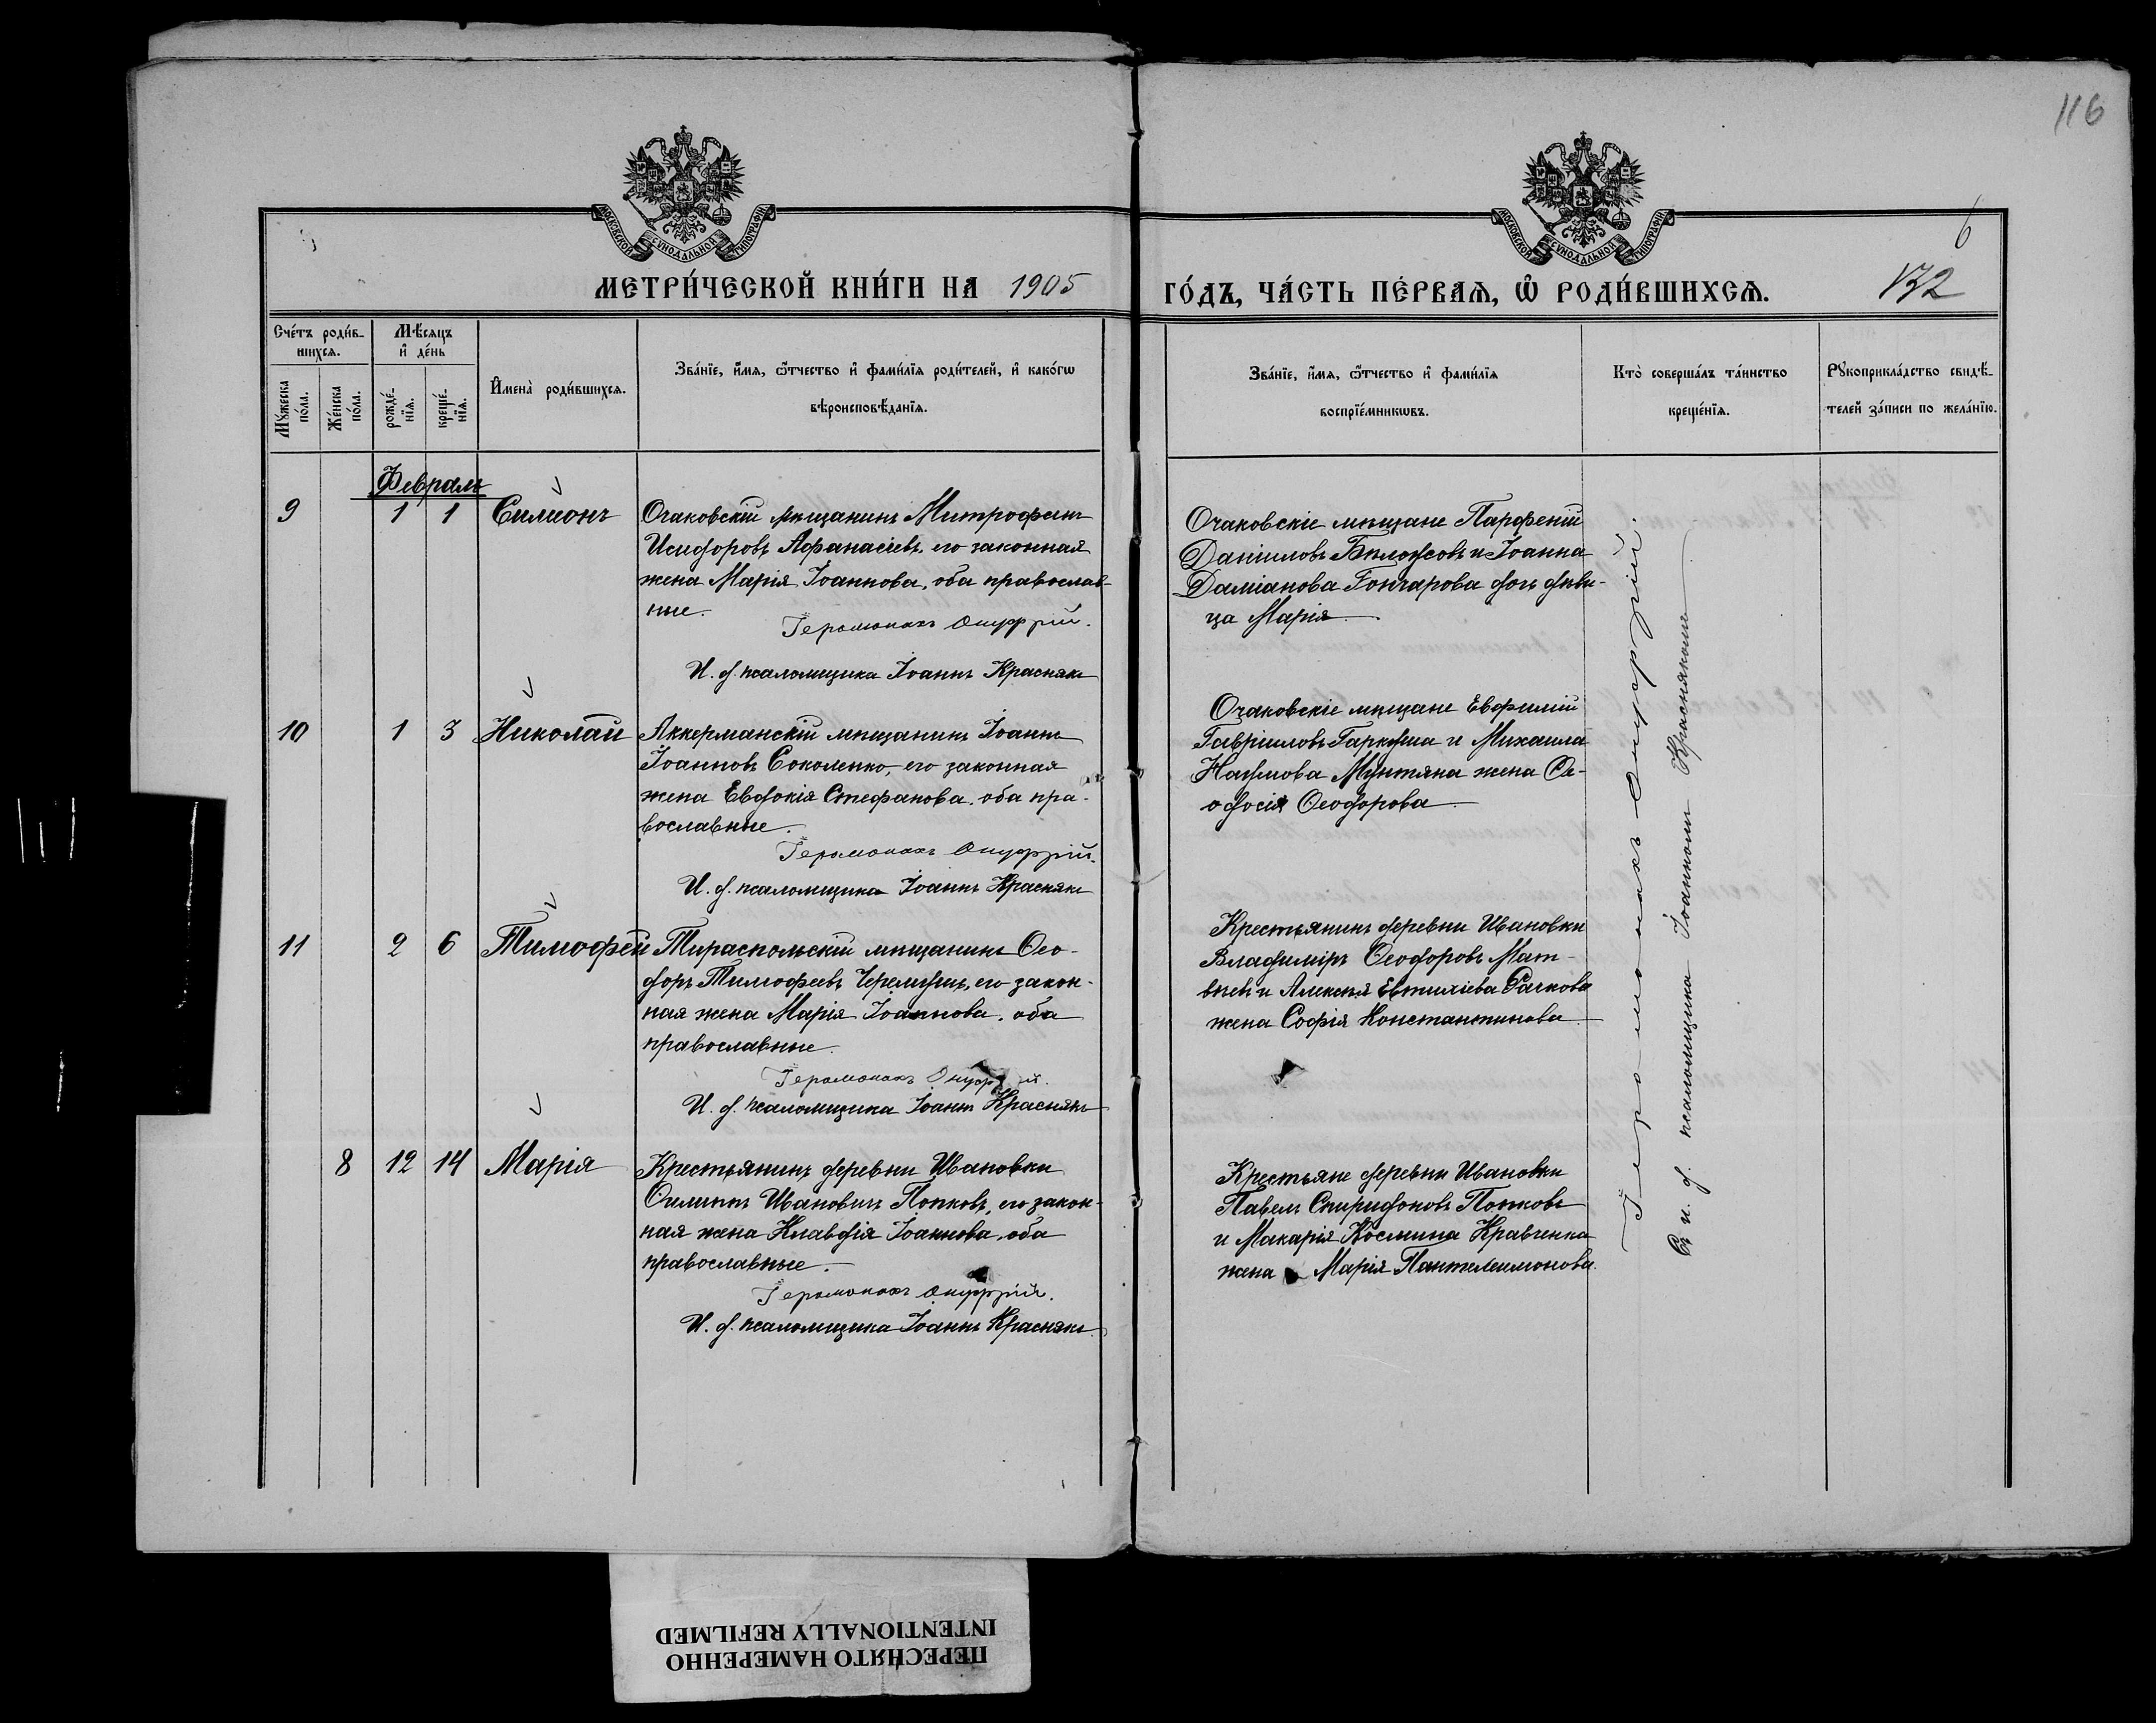 116
МОСКОВСКОЙ СУНОДАЛЬНОЙ ТИПОГРАФІИ
МОСКОВСКОЙ СУНОДАЛЬНОЙ ТИПОГРАФІИ
6
МЕТРИ́ЧЕСКОЙ КНИ́ГИ НА 1905
ГО́ДЪ, ЧА́СТЬ ПЕ́РВАѦ, Ѡ҆ РОДИ́ВШИХСѦ.
132
Сче́тъ роди́в-
шихсѧ.
Мѣ́сѧцъ
и҆ де́нь
Мꙋ́жеска
по́ла.
Же́нска
по́ла.
рожде́-
нїѧ.
креще́-
нїѧ.
И҆мена̀ роди́вшихсѧ.
Зва́нїе, и҆́мѧ, ѻ҆́тчество и҆ фами́лїѧ роди́телей, и҆ како́гѡ
вѣроисповѣ́данїѧ.
Зва́нїе, и҆́мѧ, ѻ҆́тчество и҆ фами́лїѧ
воспрїе́мникѡвъ.
Кто̀ соверша́лъ та́инство
креще́нїѧ.
Рꙋкоприкла́дство свидѣ́-
телей за́писи по жела́нїю.
Февраль
9 1 1 Симеонъ
Очаковскій мѣщанинъ Митрофанъ
Исидоровъ Афанасіевъ, его законная
жена Марія Іоаннова, оба православ-
ные.
Іеромонахъ Онуфрій.
И. д. псаломщика Іоаннъ Краснякъ
Очаковскіе мѣщане Парфеній
Даніиловъ и Іоанна
Даміанова Гончарова дочь дѣви-
ца Марія
10 1 3 Николай
Аккерманскій мѣщанинъ Іоаннъ
Іоанновъ Соколенко, его законная
жена Евдокія Стефанова, оба пра-
вославные.
Іеромонахъ Онуфрій.
И. д. псаломщика Іоаннъ Краснякъ
Очаковскіе мѣщане Евфимій
Гавріиловъ Гаркуша и Михаила
Наумова Мунтяна жена Ѳе-
одосія Ѳеодорова
11 2 6 Тимофей
Тираспольскій мѣщанинъ Ѳео-
доръ Тимофеевъ его закон-
ная жена Марія Іоаннова, оба
православные.
Іеромонахъ Онуфрій.
И. д. псаломщика Іоаннъ Краснякъ
Крестьянинъ деревни Ивановки
Владиміръ Ѳеодоровъ Мат-
вѣевъ и Алексѣя Евтихіева Рачкова
жена Софія Константинова
8 12 14 Марія
Крестьянинъ деревни Ивановки
Филиппъ Ивановичъ Попковъ, его закон-
ная жена Клавдія Іоаннова, оба
православные.
Іеромонахъ Онуфрій.
И. д. псаломщика Іоаннъ Краснякъ
Крестьяне деревни Ивановки
Павелъ Спиридоновъ Попковъ
и Макарія Космина Кравченка
жена Марія Пантелеимонова.
Іеромонахъ Онуфрій.
Съ и. д. псаломщика Іоанномъ Краснякомъ
ПЕРЕСНЯТО НАМЕРЕННО
INTENTIONALLY REFILMED